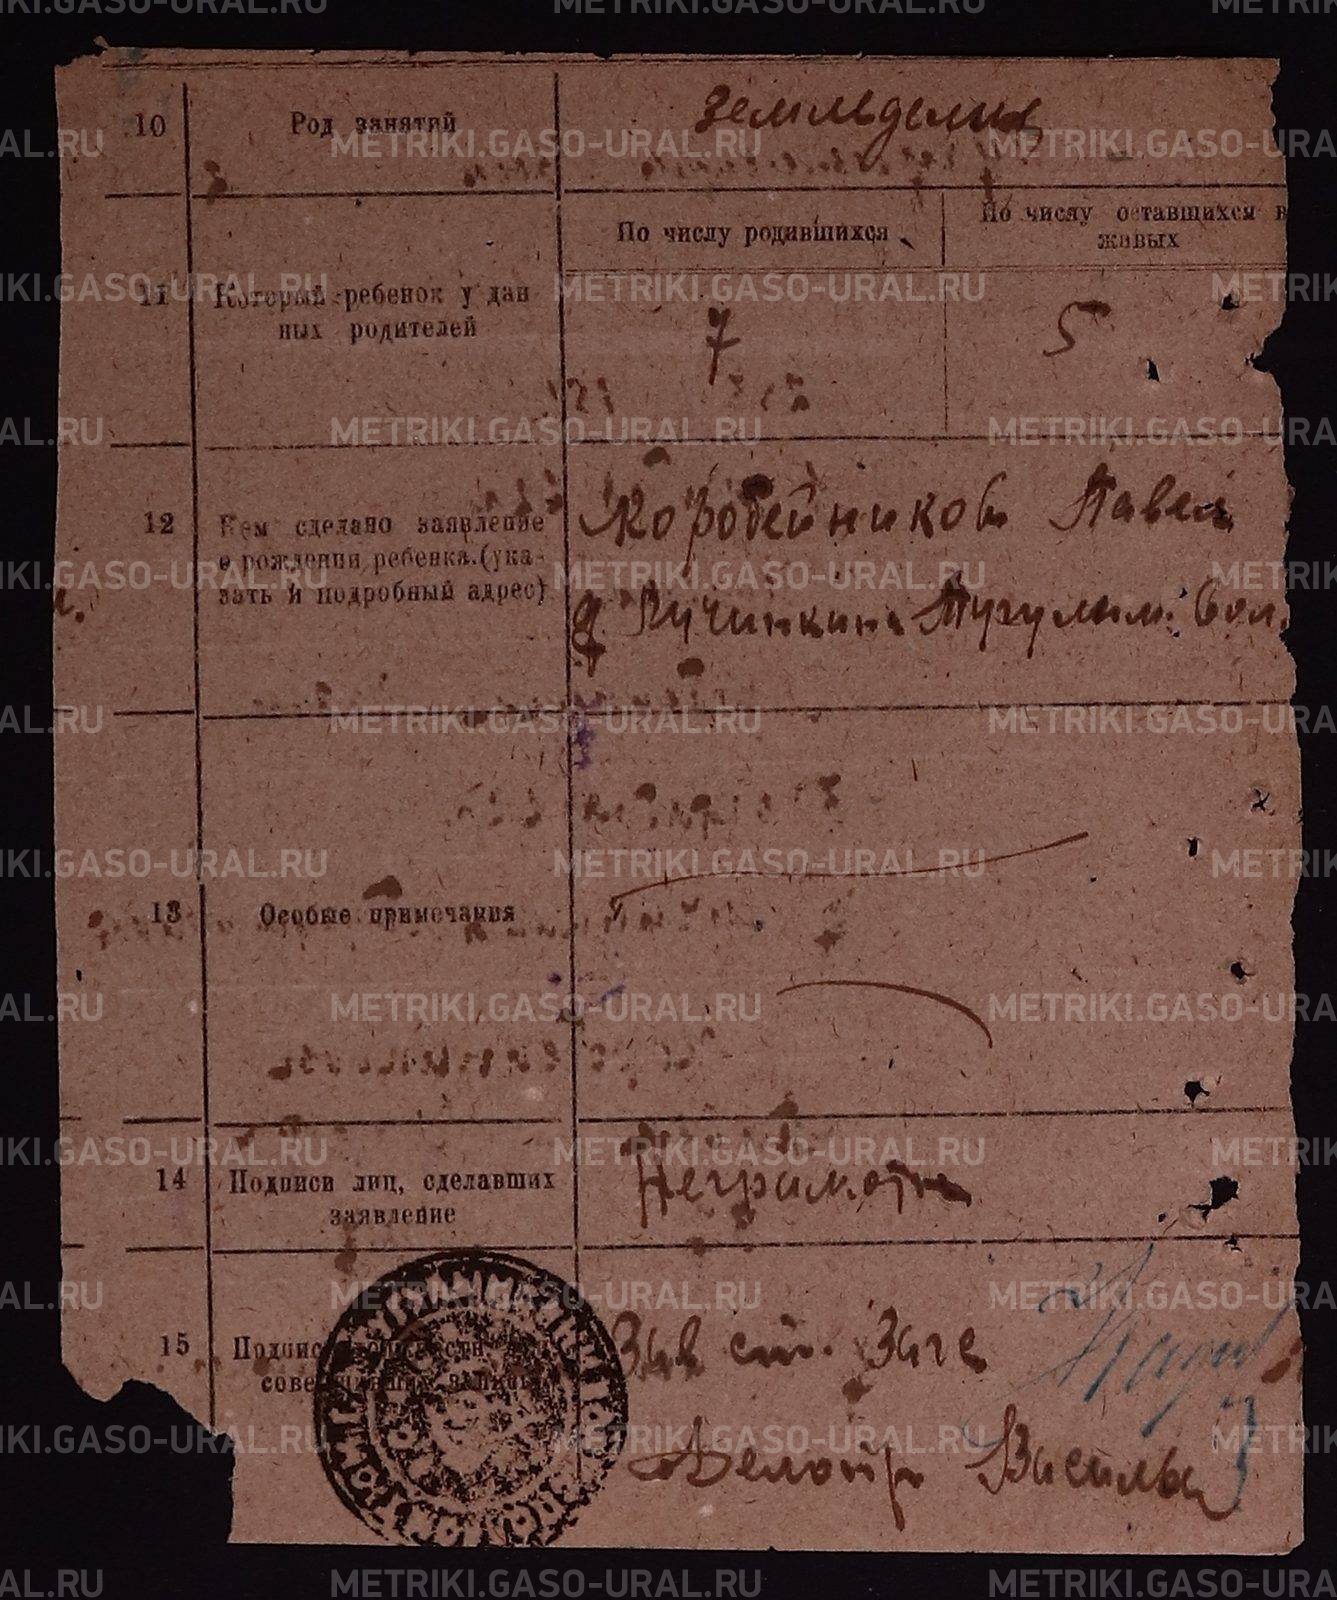 10 Род занятий земледелия
По числу родившихся
По числу оставшихся в
живых
11 Который ребенок у дан
ных родителей
7 5
12 Кем сделано заявление
о рождении ребенка (ука-
зать и подробный адрес)
Коробейников Павел
д. Тугулым. вол.
13 Особые примечания
14 Подписи лиц, сделавших
заявление
Неграмотн
15
Зав стол. Загс
Делопр Василье
METRIKI.GASO-URAL.RU